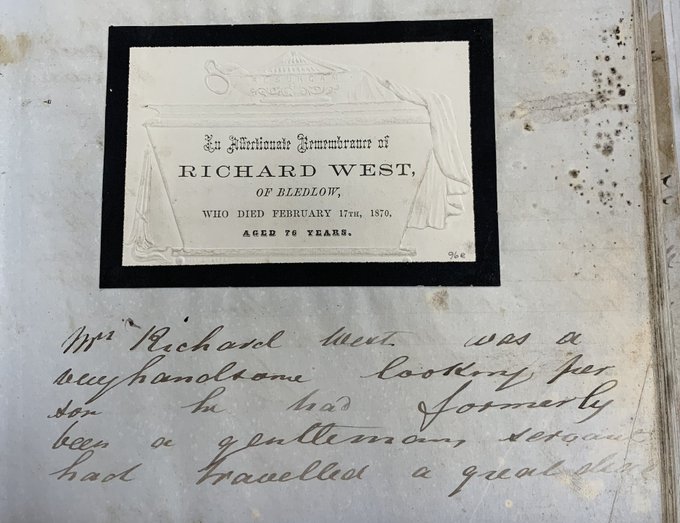 In Affectionate Remembrance of
RICHARD WEST,
OF BLEDLOW,
WHO DIED FEBRUARY 17TH, 1870,
AGED 76 YEARS.
96e
Mr Richard West was a
very handsome looking per
son he had formerly
been a gentlemans servant
had travelled a great deal